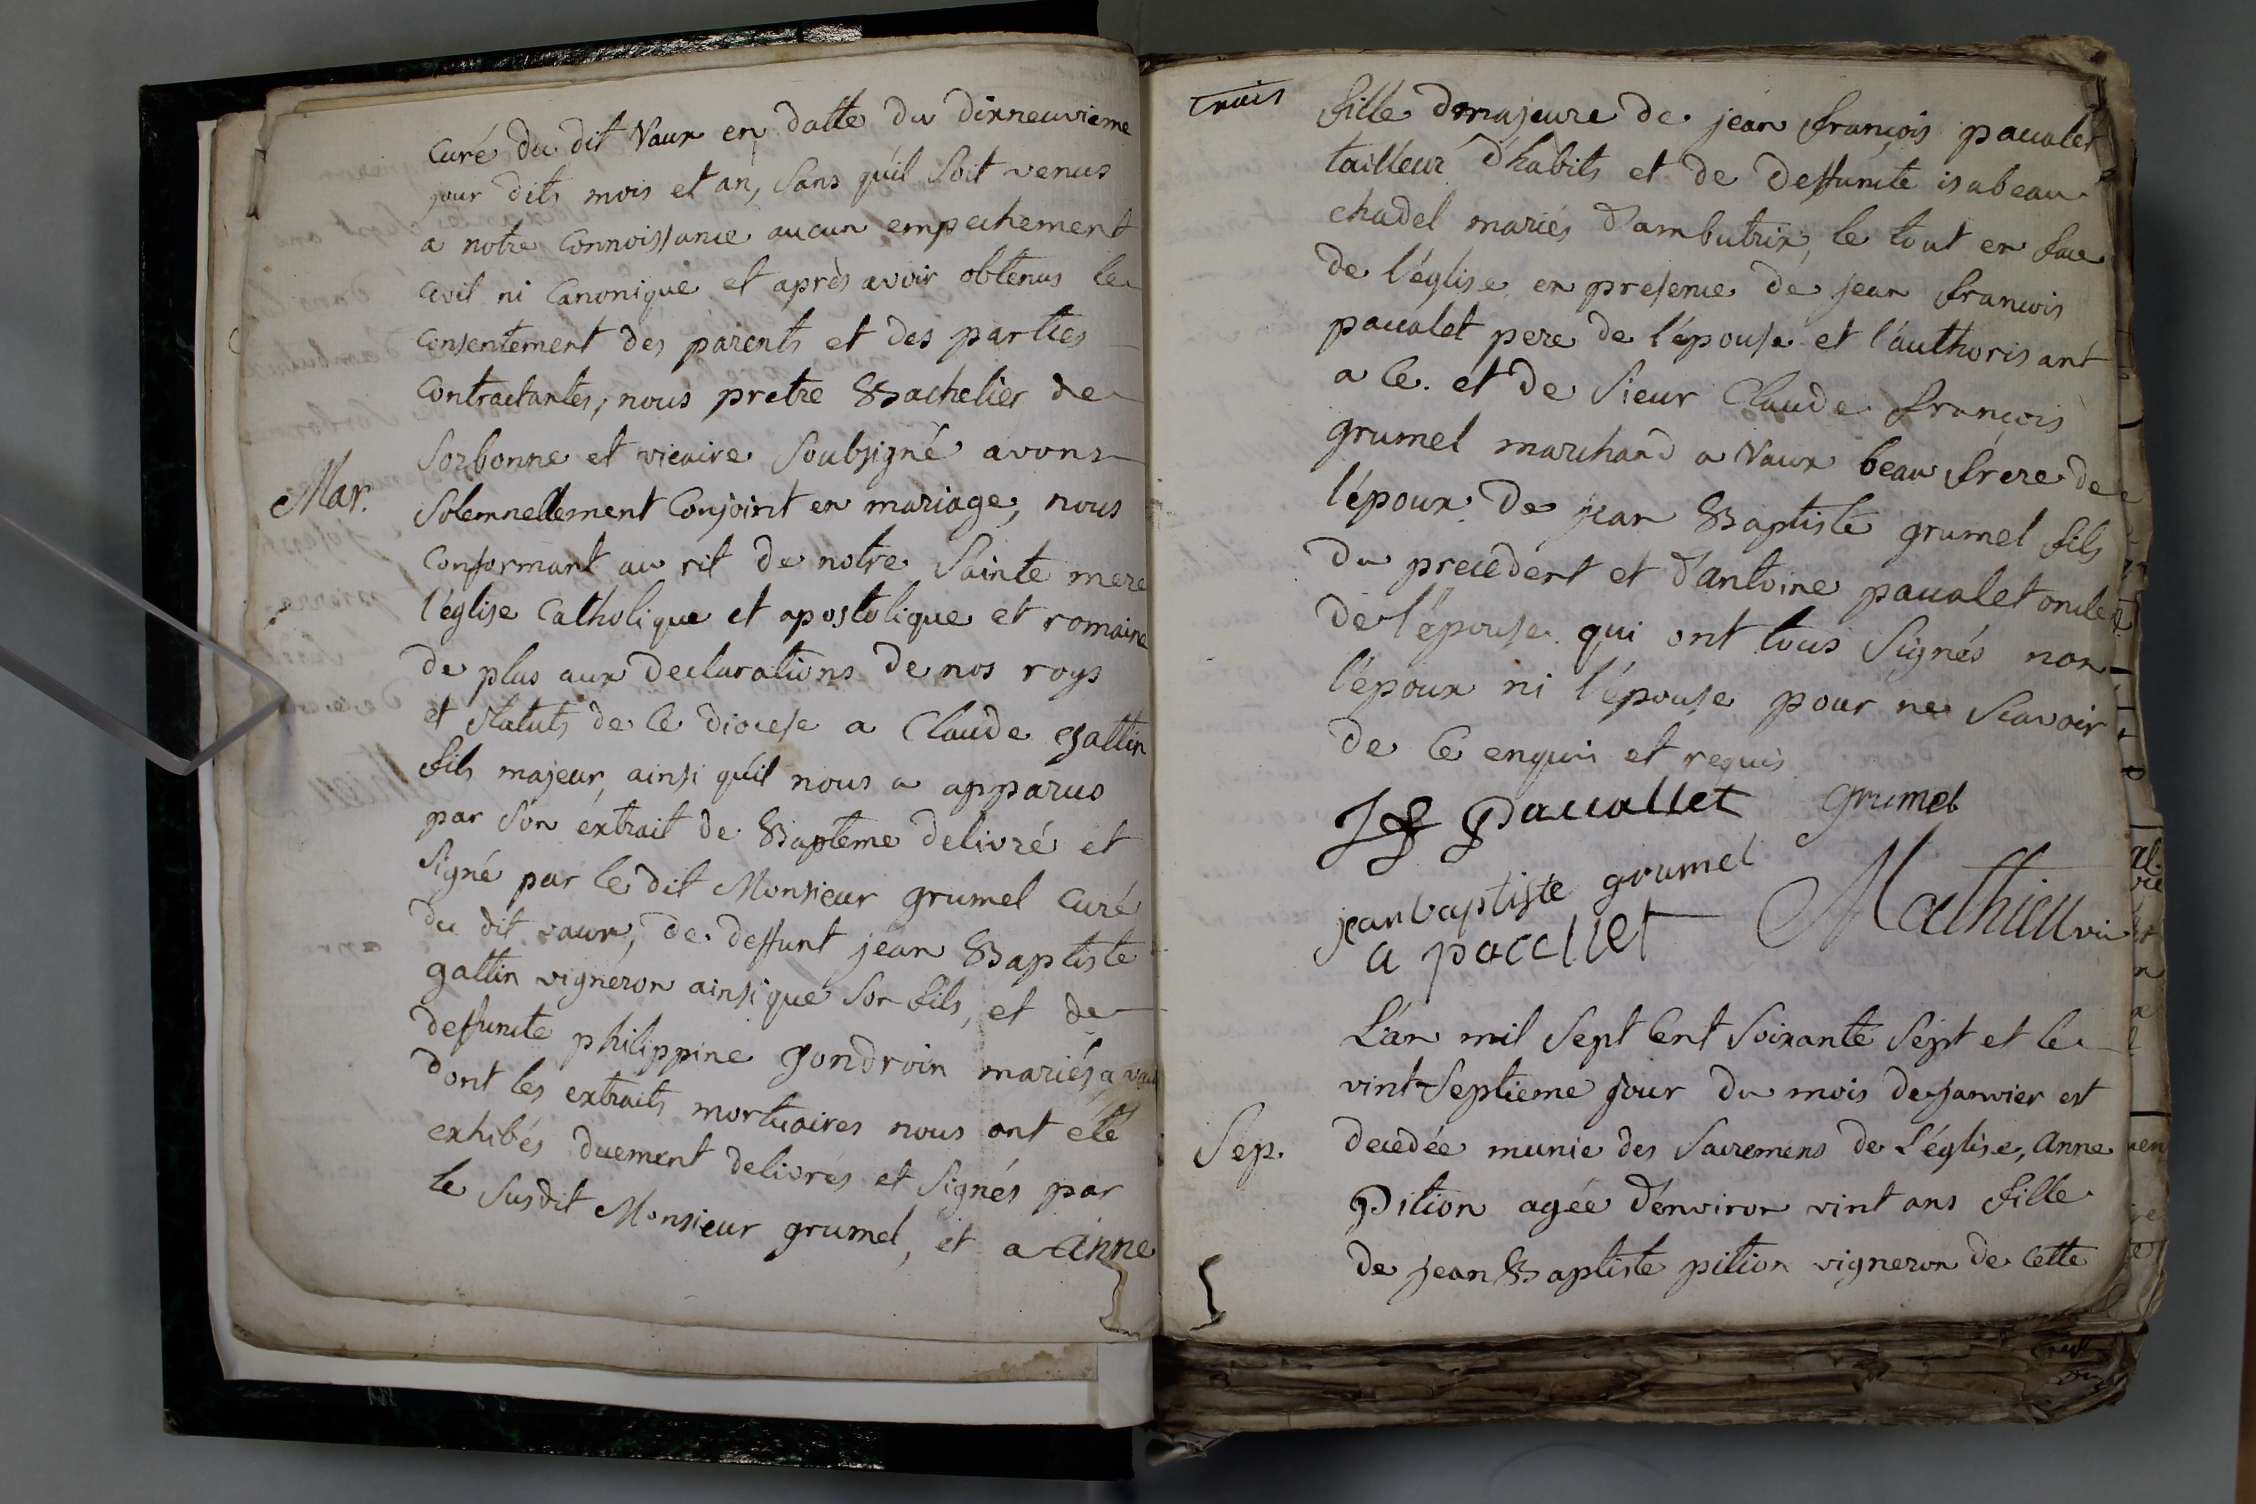 Curé du dit Vaux en datte du dixneuvieme
jour dits mois et an, sans qu'il soit venus
a notre connoissance aucun empechement
civil ni canonique et après avoir obtenus le
consentement des parents et des parties
contractantes, nous pretre Bachelier de
Sorbonne et vicaire soubsigné avons
Mar.
solemnellement conjoint en mariage, nous
conformant au rit de notre Sainte mere
l'église catholique et apostolique et romaine
de plus aux declarations de nos roys
et statuts de ce diocese a Claude gattin
fils majeur, ainsi qu'il nous a apparus
par son extrait de Bapteme delivré et
signé par le dit Monsieur grumel curé
du dit vaux, de deffunt jean Baptiste
gattin vigneron ainsi que son fils, et de
deffuncte philippine gondroin mariés a
dont les extraits mortuaires nous ont été
exhibés duement delivrés et signés par
le susdit Monsieur grumel, et a Anne
trois
fille majeure de jean françois pacalet
tailleur d'habits et de deffuncte isabeau
chadel mariés d'ambutrix, le tout en face
de l'église en presence de jean francois
pacalet pere de l'épouse et l'authorisant
a ce. et de sieur Claude françois
grumel marchand a vaux beau frere de
l'époux de jean Baptiste grumel fils
du precedent et d'antoine pacalet oncle
de l'épouse qui ont tous signés non
l'époux ni l'épouse pour ne scavoir
de ce enquis et requis
Jf pacallet grumel
jean baptiste grumel
a pacallet Mathieu vic
L'an mil sept cent soixante sept et le
vint-septieme jour du mois de janvier est
Sep.
decedée munie des sacremens de L'église, anne
Pition agée d'environ vint ans fille
de jean Baptiste pition vigneron de cette